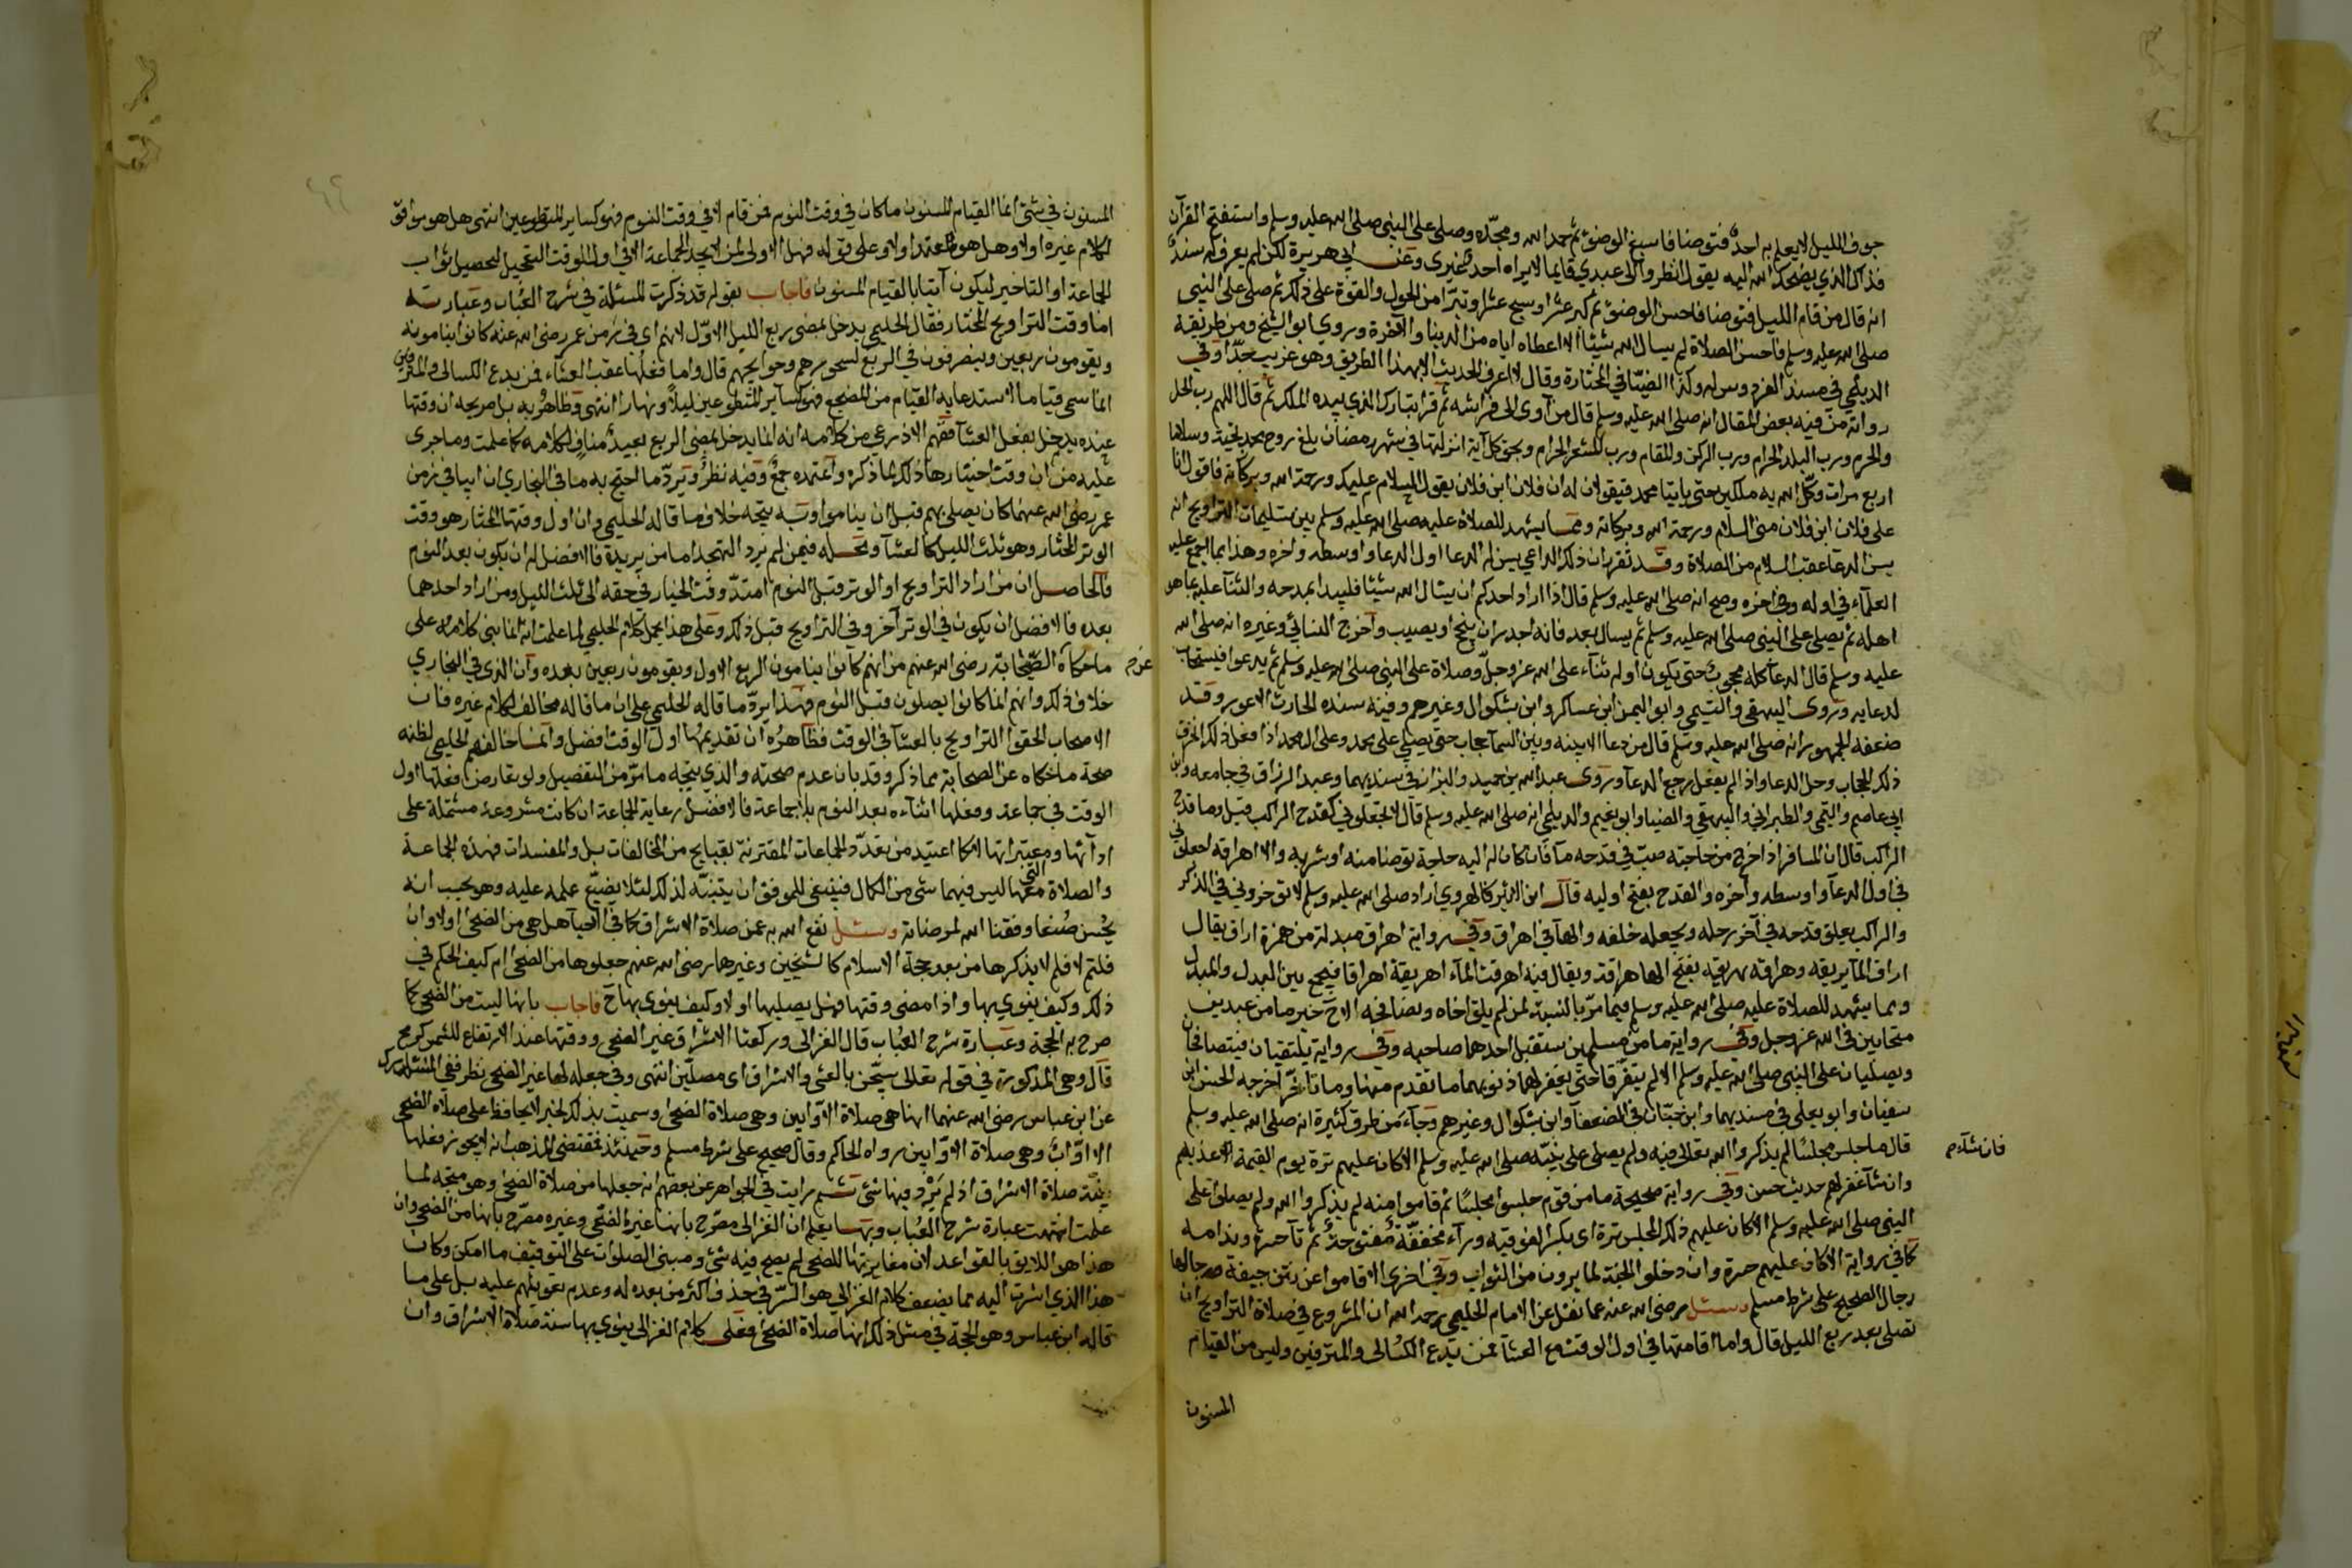 جوف الليل لا يعلم به احد فتوضا فاسبغ الوضوء ثم حمد الله ومجده وصلى على النبي صلى الله عليه وسلم واستفتح القرآن
فذاك الذي يضحك الله اليه يقول انظروا الى عبدي قايما لا يراه احد غيري وعن ابي هريرة لكن لم يعرف له سند
انه قال من قام الليل فتوضا فاحسن الوضوء ثم كبر عشرا وسبح عشرا وتبرا من الحول والقوة على ذلك ثم صلى على النبي
صلى الله عليه وسلم فاحسن الصلاة لم يسال الله شيئا الا اعطاه اياه من الدنيا والآخرة وروي ابو الشيخ ومن طريقه
الديلمي في مسند الفردوس له وكذا الضيا في المختارة وقال لا اعرف الحديث الا بهذا الطريق وهو غريب جدا وفي
رواته من فيه بعض المقال انه صلى الله عليه وسلم قال من آوى الى فراشه ثم قرا تبارك الذي بيده الملك ثم قال اللهم رب الحل
والحرم ورب البلد الحرام ورب الركن والمقام ورب المشعر الحرام وبحق كل آية انزلتها في شهر رمضان بلغ روح محمد تحية وسلاما
اربع مرات وكل الله به ملكين حتى ياتيا محمد فيقولان له ان فلان ابن فلان يقول السلام عليك ورحمة الله وبركاته فاقول انا
على فلان ابن فلان مني السلام ورحمة الله وبركاته ومما يشهد للصلاة عليه صلى الله عليه وسلم بين تسليمات التراويح انه
يسن الدعا عقب السلام من الصلاة وقد تقرر ان ذلك الداعي يسن له الدعا اول الدعا واوسطه واخره وهذا مما اجمع عليه
العلماء في اوله وفي اخره وصح انه صلى الله عليه وسلم قال اذا اراد احدكم ان يسال الله شيئا فليبدا بمدحه والثنآ عليه بما هو
اهله ثم يصلي على النبي صلى الله عليه وسلم ثم يسال بعد فانه اجدر ان ينجح او يصيب وآخرج النسائي وغيره انه صلى الله
عليه وسلم قال الدعآ كله محجوب حتى يكون اوله ثنآء على الله عز وجل وصلاة على النبي صلى الله عليه وسلم ثم يدعوا فيستجاب
لدعايه وروى البيهقي والتيمي وابو اليمن ابن عساكر وابن بشكوال وغيرهم وفيه سنده الحارث الاعور وقد
ضعفه الجمهور انه صلى الله عليه وسلم قال من دعا الا بينه وبين السمآ حجاب حتى يصلي على محمد وعلى ال محمد اذا فعل ذلك انخرق
ذلك الحجاب وحل الدعا واذا لم يفعل رجع الدعآ وروى عبد الله بن حميد والبزار في سنديهما وعبد الرزاق في جامعه وابن
ابي عاصم والتيمي والطبراني والبيهقي والضيا وابو نعيم والديلمي انه صلى الله عليه وسلم قال لا تجعلوني كقدح الراكب قيل وما قدح
الراكب قال ان المسافر اذا خرج من حاجته صب في قدحه مآ فان كان له اليه حاجة توضا منه او شربه والا اهراقه اجعلوني
في اول الدعآ واوسطه وآخره والقدح بفتح اوليه قال ابن الاثير كالهروي اراد صلى الله عليه وسلم لا توخروني في الذكر
والراكب يعلق قدحه في آخر رحله ويجعله خلفه والهآ في اهراق وفي رواية اهراق مبدلة من همزة اراق يقال
اراق المآ يريقه وهراقه يهريقه بفتح الها هراقة ويقال فيه اهرقت المآء اهريقه اهراقا فيجمع بين البدل والمبدل
ومما يشهد للصلاة عليه صلى الله عليه وسلم فيما مر بالنسبة لمن لم يلق اخاه ويصافحه الآن خبر ما من عبدين
متحابين في الله عز وجل وفي رواية ما من مسلمين يستقبل احدهما صاحبه وفي رواية يلتقيان فيتصافحان
ويصليان على النبي صلى الله عليه وسلم الا لم يتفرقا حتى يغفر لهما ذنوبهما ما تقدم منها وما تآخر اخرجه الحسن ابن
سفيان وابو يعلى في مسنديهما وابن حبان في الضعفآ وابن بشكوال وغيرهم وجآء من طرق كثيرة انه صلى الله عليه وسلم
قال ما جلس مجلسا لم يذكروا الله تعالى فيه ولم يصلى على نبيه صلى الله عليه وسلم الا كان عليهم ترة يوم القيمة الا عذبهم
فان شآء م
وان شآ غفر لهم حديث حسن وفي رواية صحيحة ما من قوم جلسوا مجلسا ثم قاموا منه لم يذكروا الله ولم يصلوا على
النبي صلى الله عليه وسلم الا كان عليهم ذلك المجلس ترة اى بكسر الفوقيه ورآء مخففة مفتوحة ثم تآ حسرة وندامه
كما في رواية الا كان عليهم حسرة وان دخلوا الجنة لما يرون من الثواب وفي اخرى الا قاموا عن انتن جيفة رجالها
رجال الصحيح على شرط مسلم وسئل رضى الله عنه عما نقل عن الامام الحليمي رحمه الله ان المشروع في صلاة التراويح ان
تصلى بعد ربع الليل قال واما اقامتها في اول الوقت مع العشآ فمن بدع الكسالى والمترفين وليس من القيام
المسنون
المسنون في شئ انما القيام المسنون ما كان في وقت النوم فمن قام لا في وقت النوم فهو كساير المتطوعين انتهى هل هو موافق
لكلام غيره اولا وهل هو المعتمد اولا وعلى قوله فهل الاولى لمن لا يجد الجماعة الا في اول الوقت التعجيل لتحصيل ثواب
الجماعة او التاخير ليكون آتيا بالقيام المسنون فاجاب بقوله قد ذكرت المسئلة في شرح العباب وعبارته
اما وقت التراويح المختار فقال الحليمي يدخل بمضي ربع الليل الاول لانهم اى في زمن عمر رضى الله عنه كانوا ينامونه
ويقومون ربعين وينصرفون في الربع لسحورهم وحوايجهم قال واما فعلها عقب العشآء فمن بدع الكسالى والمترفين
انما سمى قياما لاستدعايه القيام من المضجع فهو كساير المتطوعين ليلا ونهارا انتهى وظاهره بل صريحه ان وقتها
عنده يدخل بفعل العشآ ففهم الاذرعي من كلامه انه انما يدخل بمضي الربع بعيد مناف لكلامه كما علمت وما جرى
عليه من ان وقت اختيارها ذلك لما ذكره وآعتمده جمع وفيه نظر ويرد ما احتج به ما في البخاري ان ابيا في زمن
عمر رضى الله عنهما كان يصلى بهم قبل ان يناموا وبه يتجه خلاف ما قاله الحليمي وان اول وقتها المختار هو وقت
الوتر المختار وهو ثلث الليل كالعشآ ومحله فيمن لم يرد التهجد اما من يريده فالافضل له ان يكون بعد النوم
فالحاصل ان من اراد التراويح او الوتر قبل النوم امتد وقت الخيار في حقه الى ثلث الليل ومن اراد احدهما
بعده فالافضل ان يكون في الوتر آخر وفي التراويح قبل ذلك وعلى هذا يحمل كلام الحليمي لما علمت انه انما بنى كلامه على
ما حكآه الصحابة رضى الله عنهم من انهم كانوا ينامون الربع الاول ويقومون ربعين بعده وآن الذي في البخاري
عن م
خلاف ذلك وانهم انما كانوا يصلون قبل النوم فهذا يرد ما قاله الحليمي على ان ما قاله مخالف لكلام غيره فان
الاصحاب الحقوا التراويح بالعشآ في الوقت فظآهره ان تقديمها اول الوقت افضل وانما خالفهم الحليمي لظنه
صحة ما حكاه عن الصحابة مما ذكر وقد بان عدم صحته والذي يتجه ما مر من التفصيل ولو تعارض فعلها اول
الوقت في جماعة وفعلها اثنآءه بعد النوم بلا جماعة فالافضل رعاية الجماعة ان كانت مشروعة مشتملة على
ادآبها ومعتبراتها لا كما اعتيد من تعدد الجماعات المقترنة بقبايح من المخالفات بل والمفسدات فهذه الجماعة
والصلاة معها التي ليس فيهما شئ من الكمال فينبغي للموفق ان يتنبه لذلك لئلا يضيع عمله عليه وهو يحسب انه
يحسن صنعا وفقنا الله لمرضاته وسئل نفع الله به عن صلاة الاشراق كما في الاحيآ هل هي من الضحى اولا وان
قلتم لا فلم لا يذكرها من بعد حجة الاسلام كالشيخين وغيرها رضى الله عنهم جعلوها من الضحى ام كيف الحكم في
ذلك وكيف ينوى بها واذا مضى وقتها فهل يصليها اولا وكيف ينوى بها ح فاجاب بانها ليست من الضحى كما
صرح به الحجة وعبارة شرح العباب قال الغزالى وركعتا الاشراق غير الضحى ووقتها عند الارتفاع للشمس كرمح
قال وهى المذكورة في قوله تعالى يسبحن بالعشى والاشراق اى مصلين انتهى وفي جعله لها غير الضحى نظر ففي المستدرك
عن ابن عباس رضى الله عنهما انها هي صلاة الآوابين وهى صلاة الضحى وسميت بذلك لخبر لا يحافظ على صلاة الضحى
الا اواب وهى صلاة الاوابين رواه الحاكم وقال صحيح على شرط مسلم وحينئذ فمقتضى المذهب انه لا يجوز فعلها
بنية صلاة الاشراق اذ لم يرد فيها شئ ثم رايت في الجواهر عن بعضهم انه جعلها من صلاة الضحى وهو متجه لما
علمت انتهت عبارة شرح العباب وبها يعلم ان الغزالى مصرح بانها غير الضحى وغيره مصرح بانها من الضحى وان
هذا هو اللايق بالقواعد لان مغايرتها للضحى لم يصح فيه شئ ومبنى الصلوات على التوقيف ما امكن وكان
هذا الذي اشرت اليه مما يضعف كلام الغزالي هو السر في حذف اكثر من بعده له وعدم تعويلهم عليه بل على ما
قاله ابن عباس وهو الحجة في مثل ذلك انها صلاة الضحى فعلى كلام الغزالى ينوي بها سنة صلاة الاشراق وان